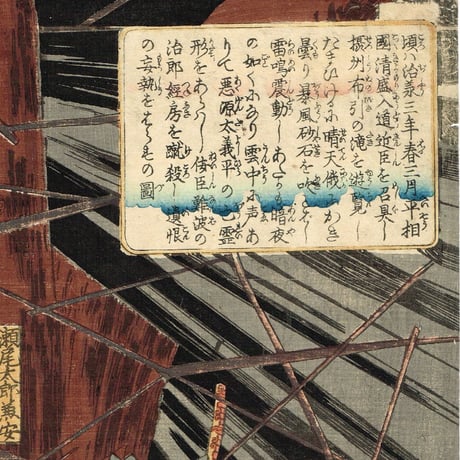 頃ハ治承三年春三月平相
國清盛入道近臣を召具し
摂州布引の滝を遊覧し
たまひけるに晴天俄にかき
曇り暴風砂石を吹
雷鳴震動しあたかも暗夜
の如くになり雲中に声あ
りて悪源太義平の霊
形をあらハし侫臣難波の
治郎経房を蹴殺し遺恨
の妄執をはらすの圖
瀬尾太郎兼安